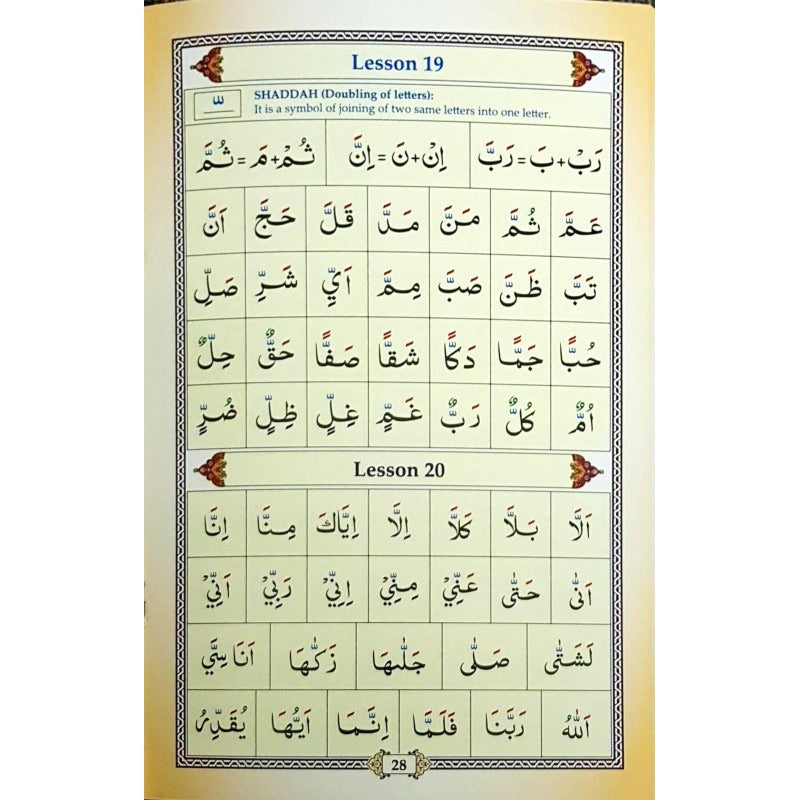 Lesson 19
ّ SHADDAH (Doubling of letters):
It is a symbol of joining of two same letters into one letter.
رَبْ+بَ=رَبَّ اِنْ+نَ=اِنَّ ثُمْ+مَ=ثُمَّ
عَمَّ ثُمَّ مَنَّ مَدَّ قَلَّ حَجَّ اَنَّ
تَبَّ ظَنَّ صَبَّ مِمَّ اَيِّ شَرِّ صَلِّ
حُبًّا جَمًّا دَكًّا شَقًّا صَفًّا حَقٌّ حِلٌّ
اُمٌّ كُلٌّ رَبٌّ غَمٍّ غِلٍّ ظِلٍّ ضُرٍّ
Lesson 20
اَلَّا بَلَّا كَلَّا اِلَّا اِيَّاكَ مِنَّا اِنَّا
اَنّٰى حَتّٰى عَنِّيْ مِنِّيْ اِنِّيْ رَبِّيْ اَنِّيْ
لَشَتّٰى صَلّٰى جَلّٰىهَا زَكّٰىهَا اَنَاسِيَّ
اَللّٰهُ رَبَّنَا فَلَمَّا اِنَّمَا اَيُّهَا يُقَدِّرُ
28